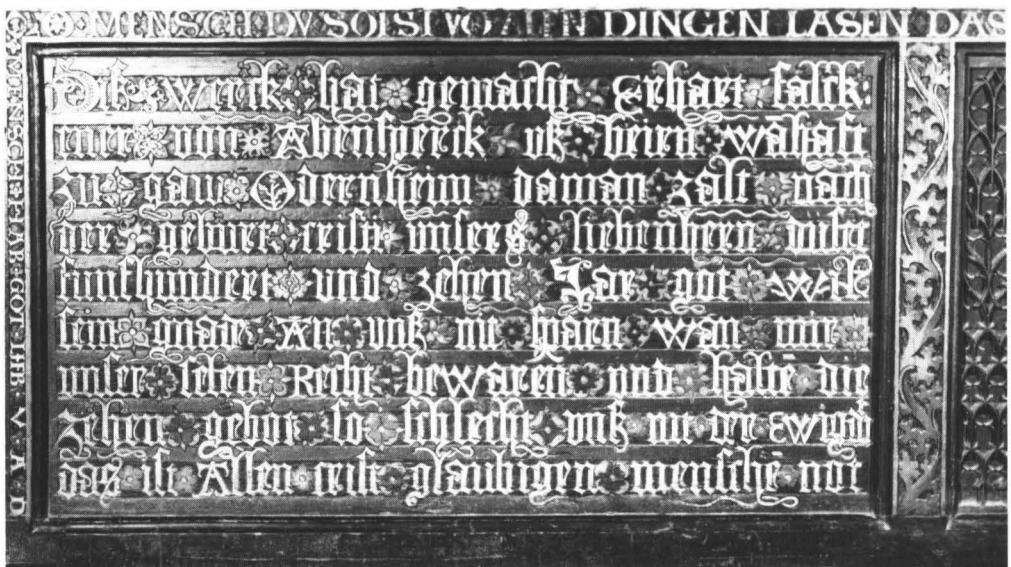 O MENSCH DV SOLST VOR ALEN DINGEN LASEN DAS
MENSCH HAB GOT LIB V A D
Disz werck hat gemacht Erhart falck
ner von Abensperck usz beiern wahaft
zu gau Odernheim da man zalt nach
der geburt cristi unsers lieben hern
funfhundert und zehen Jar got wil
sein gnad An uns nit sparn wan mir
unser selen Recht bewaren und halte die
zehen gebot so schlecht
das ist Allen crist glaubigen mensche not